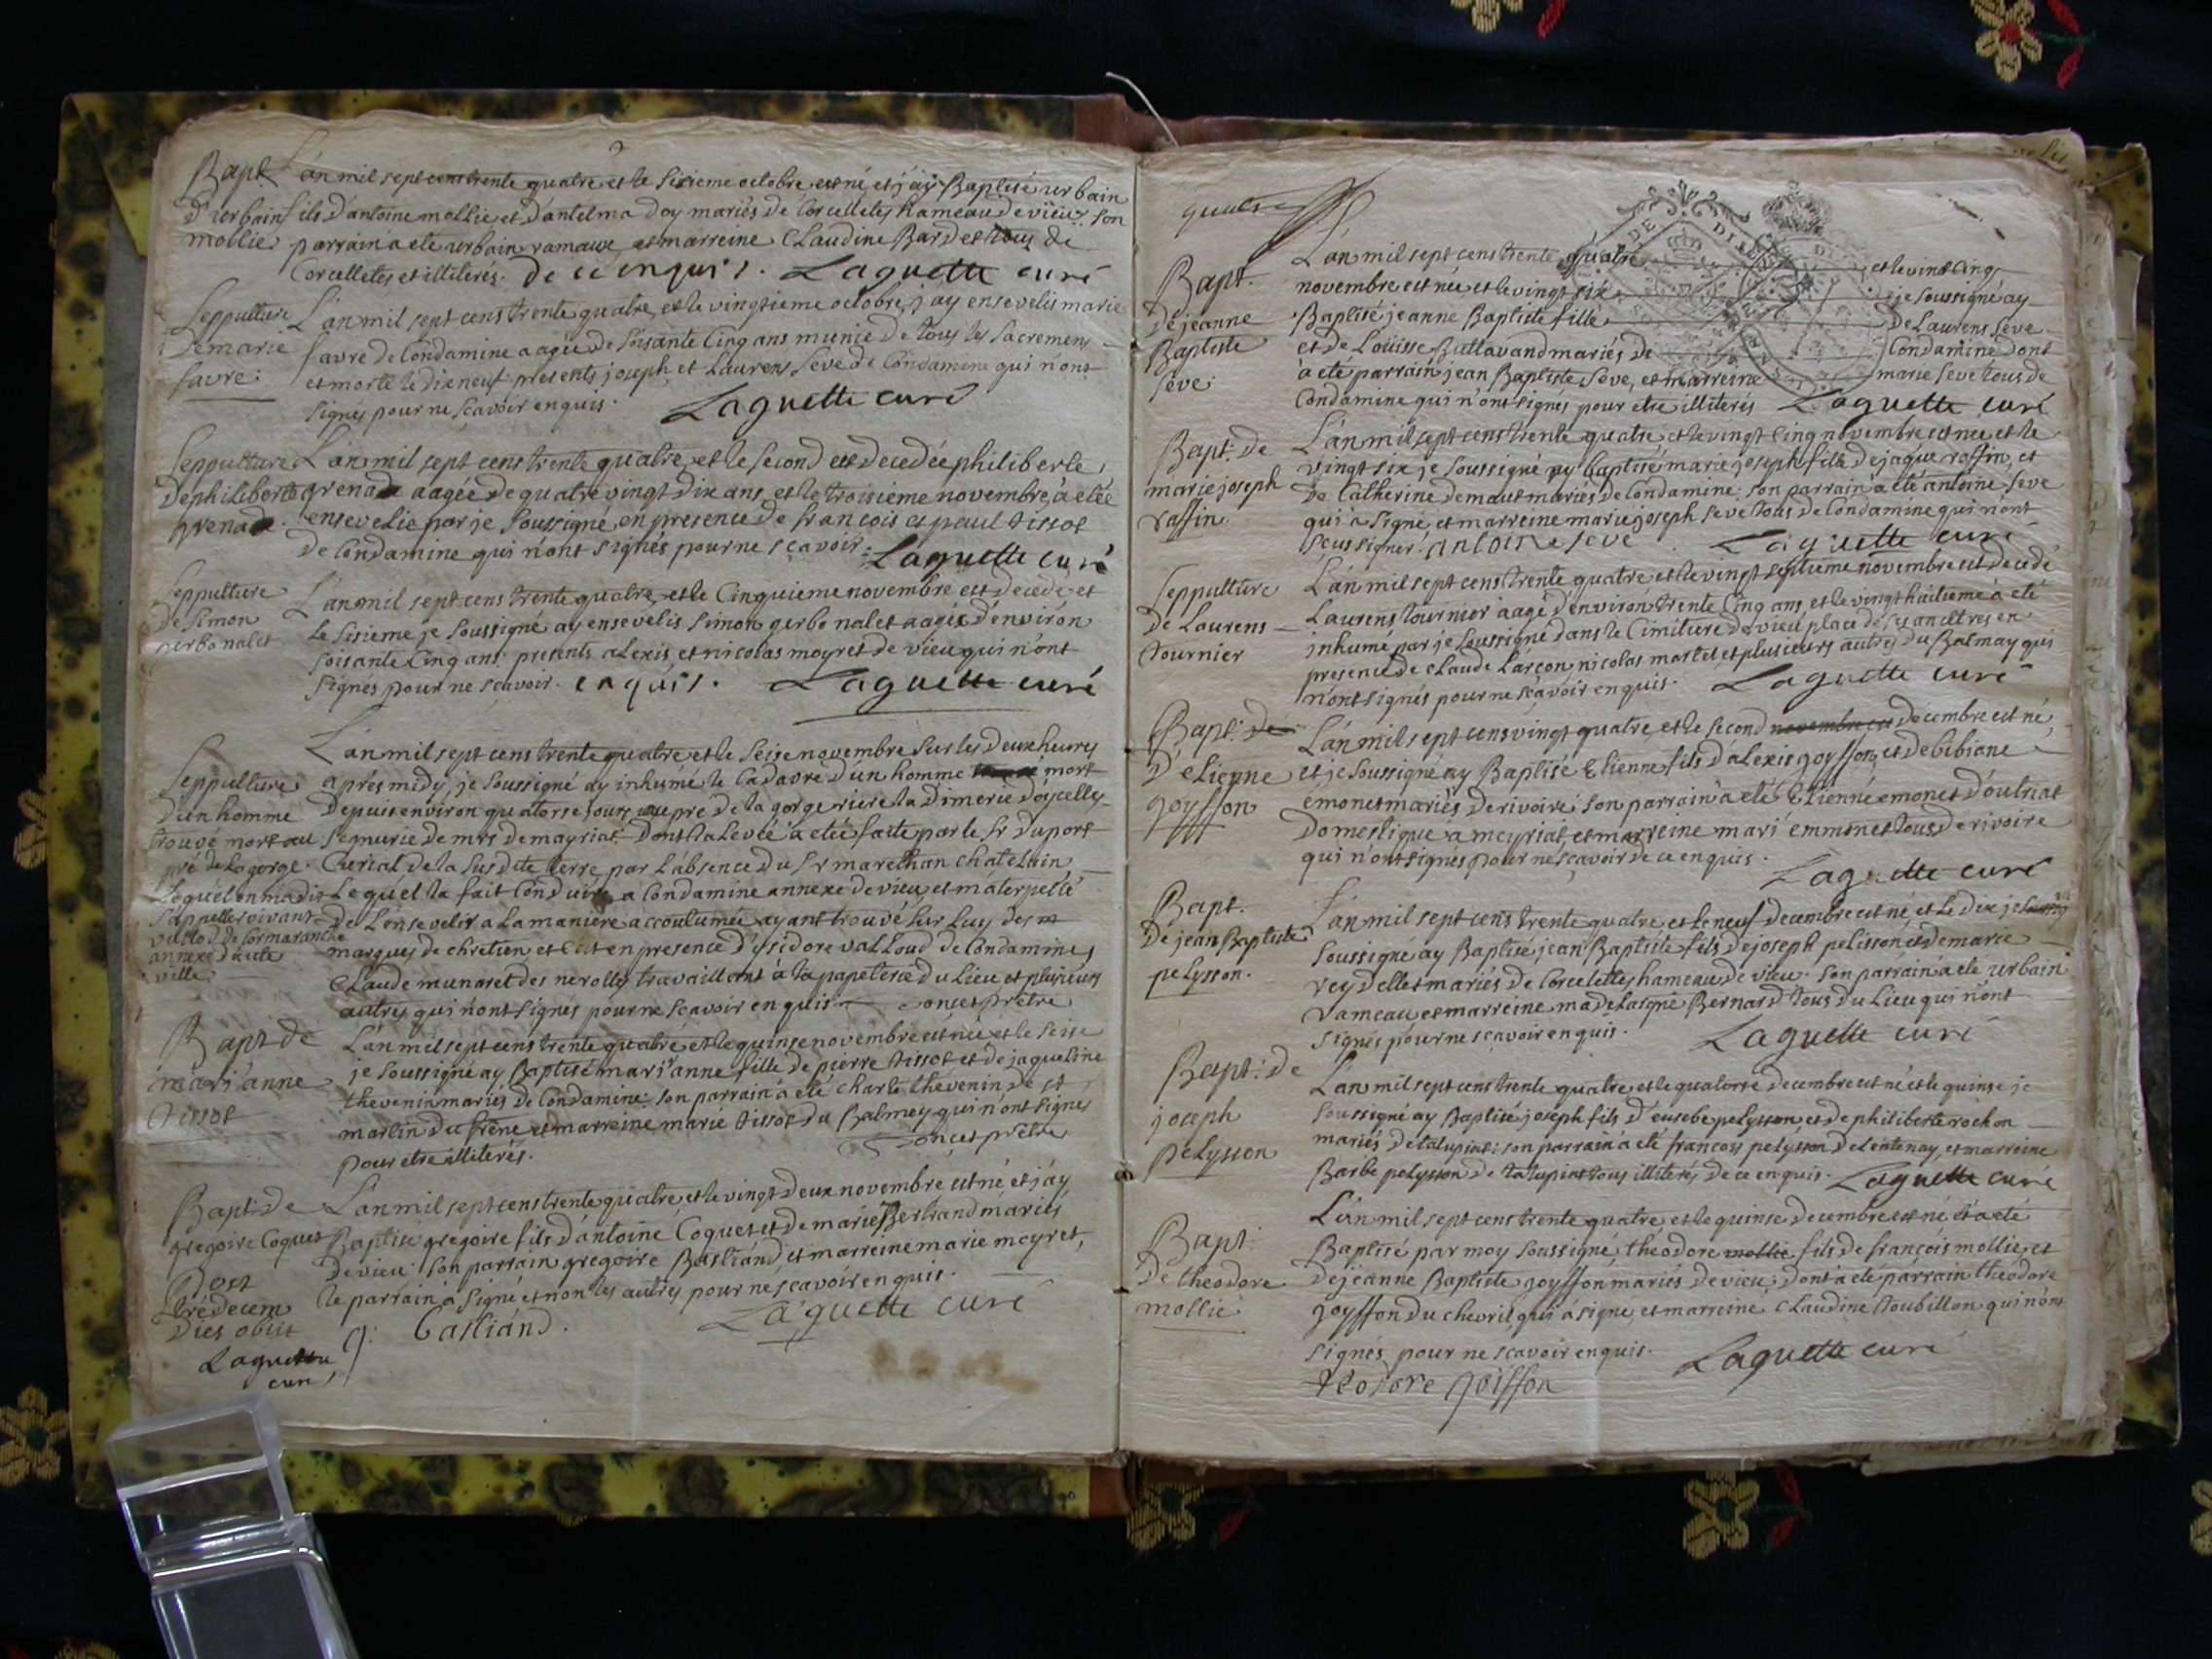 Bapt.
d'urbain
mollie
L'an mil sept cens trente quatre et le sisieme octobre est né et j'ay Baptisé urbain
fils d'antoine mollie et d'antelma doy mariés de Corcelletes hameau de vieu: son
parrain a eté urbain rameaux et marreine Claudine Bardet tous de
Corcelletes et illiterés. de ce enquis. Laguette curé
Seppulture
de marie
favre:
L'an mil sept cens trente quatre, et le vingtieme octobre, j'ay ensevelis marie
favre de Condamine aagée de soisante Cinq ans munie de tous les sacremens
et morte le dixneuf. presents joseph et Laurens Seve de Condamine qui n'ont
signés pour ne sçavoir enquis. Laguette curé
Seppulture
de philiberte
grenade.
L'an mil sept cens trente quatre, et le second est decedée philiberte
grenade aagée de quatre vingt dix ans, et le troisieme novembre à etée
ensevelie par je soussigné en presence de francois et paul tissot
de Condamine qui n'ont signés pour ne sçavoir. Laguette curé
Seppulture
de simon
gerbonalet
L'an mil sept cens trente quatre, et le Cinquieme novembre est decedé et
le sisieme je soussigné ay ensevelis simon gerbonalet aagée d'environ
soisante Cinq ans: presents alexis et nicolas moyret de vieu qui n'ont
signés pour ne scavoir. enquis. Laguette curé
Seppulture
d'un homme
trouvé mort au
pré de la gorge.
Lequel on m'a dit
s'appeller vivant
de Cormaranche
annexe d'aute
ville
L'an mil sept cens trente quatre et le seise novembre sur les deux heures
apres midy, je soussigné ay inhumé le Cadavre d'un homme mort
depuis environ quatorse jours au pre de la gorge riere la dimerie doycelles
segnurie de mrs demayriat. dont la levée a etée faite par le sr duport
Curial de la susdite terre par l'absence du sr marechan chatelain,
Lequel la fait Conduire a Condamine annexe de vieu, et m'aterpellé
de l'ensevelir a la maniere accoutumée ayant trouvé sur luy des
marques de chretien et C'est en presence d'ysidore valloud de Condamine
Claude munaret des nerolles travaillant à la papeterie du Lieu et plusieurs
autres qui n'ont signés pour ne scavoir enquis. prêtre
Bapt de
mari'anne
tissot
L'an mil sept cens trente quatre et le quinse novembre est née et le seise
je soussigné ay Baptisé mari'anne fille de pierre tissot et de jaqueline
thevenin mariés de Condamine: son parrain a eté charle thevenin de st
martin du frêne et marreine marie tissot du Balmey qui n'ont signés
pour etre illiterés. prêtre
Bapt: de
gregoire Coquet
Post
tredecem
dies obiit
Laguette
curé
L'an mil sept cens trente quatre et le vingt deux novembre est né et j'ay
Baptisé gregoire fils d'antoine Coquet et de marie Bertrand mariés
de vieu: son parrain gregoire Bastiand, et marreine marie moyret,
le parrain a signé et non les autres pour ne scavoir enquis.
g: Bastiand. Laguette curé
quatre
Bapt.
de jeanne
Baptiste
Seve:
L'an mil sept cens trente quatre et le vint Cinq
novembre est née et le vingt six je soussigné ay
Baptisé jeanne Baptiste fille de Laurens Seve
et de Louisse Bullavand mariés de Condamine dont
à eté parrain jean Baptiste Seve, et marreine marie Seve tous de
Condamine qui n'ont signés pour etre illiterés Laguette curé
Bapt: de
marie joseph
raffin.
L'an mil sept cens trente quatre et le vingt Cinq novembre est née et le
vingt six je soussigné ay baptisé marie joseph fille de jaque raffin, et
de Catherine demaut mariés de Condamine: son parrain a eté antoine Seve
qui a signé et marreine marie joseph Seve tous de Condamine qui n'ont
sçeus signer. Antoine seve Laguette curé
Seppulture
de Laurens
tournier
L'an mil sept cens trente quatre et le vingt septieme novembre est decedé
Laurens tournier aagé d'environ trente Cinq ans, et le vingt huitieme a eté
inhumé par je soussigné dans le Cimitiere de vieu place de ses ancetres en
presence de Claude Larcon, nicolas martet et plusieurs autres du Balmay qui
n'ont signés pour ne scavoir enquis. Laguette curé
Bapt: de
d'etienne
goyffon
L'an mil sept cens vingt quatre, et le second novembre est decembre est né
et je soussigné ay Baptisé Etienne fils d'alexis goyffon, et de bibiane
émonet mariés de rivoire: son parrain a eté Etienne emonet d'outriat
domestique a meyriat, et marreine mari' emmonet tous de rivoire
qui n'ont signés pour ne scavoir de ce enquis. Laguette curé
Bapt.
de jean Baptiste
pelysson.
L'an mil sept cens trente quatre et le neuf decembre est né, et le dix je soussig
soussigné ay Baptisé jean Baptiste fils de joseph pelisson et de marie
reydellet mariés de Corcelettes hameau de vieu. son parrain a eté urbain
rameau et marreine Bernard tous du Lieu qui n'ont
signés pour ne scavoir enquis. Laguette curé
Bapt: de
joseph
pelysson
L'an mil sept cens trente quatre et le quatorse decembre est né et le quinse je
soussigné ay Baptisé joseph fils d'eusebe pelysson, et de philiberte rochon
mariés de talupiat: son parrain a eté francois pelysson de Lentenay, et marreine
Barbe pelysson de talupiat tous illiterés de ce enquis. Laguette curé
Bapt:
de theodore
mollie
L'an mil sept cens trente quatre, et le quinse decembre est né et a eté
Baptisé par moy soussigné theodore mollie fils de françois mollie, et
de jeanne Baptiste goyffon mariés de vieu; dont a eté parrain theodore
goyffon du chevril qui a signe, et marreine Claudine toubillon qui n'ont
signés pour ne scavoir enquis. Laguette curé
teodore goiffon